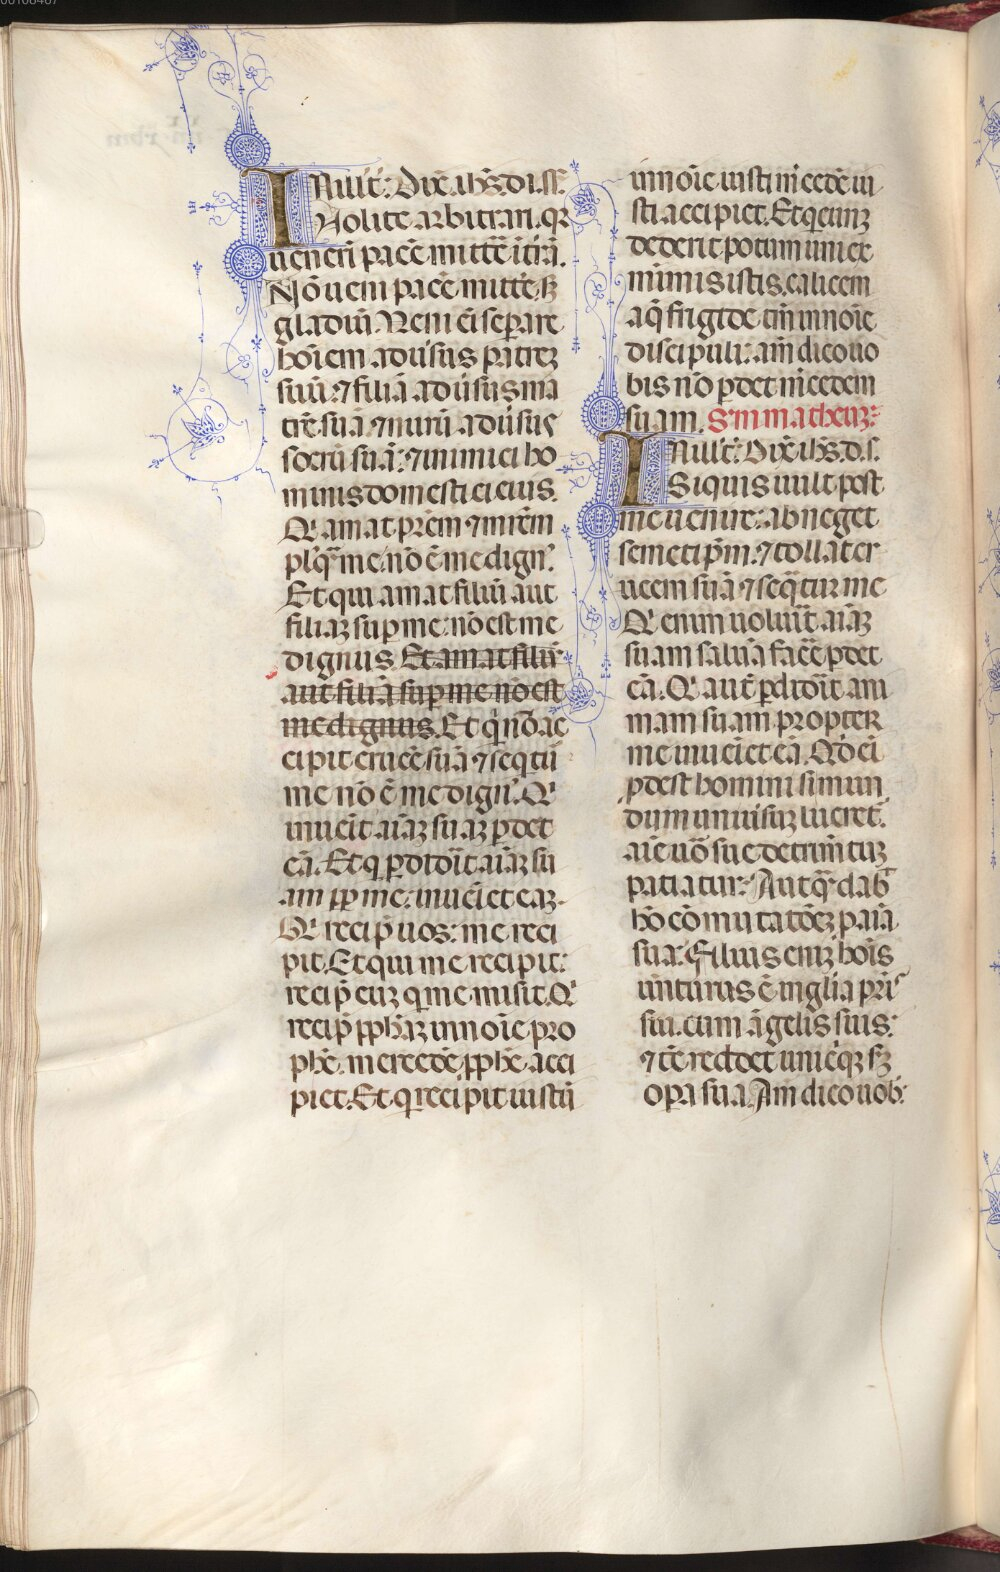 IN illt͛. Dix̄. ih̄s. di. sꝰ.
Nolite arbitrari. qꝛ
ueneri pacē mittē ī t̄rā.
Nō ueni pacē mittē. sꝫ
gladiū. Veni eī separare
hōiem adūsus patreꝫ
suū. ⁊ filiā adūsus ma
trē suā. ⁊ nurū adūsus
socrū suā: ⁊ inimici ho
minis domestici eius.
Q̄ amat pr̄em ⁊ mr̄em
plꝰq̄ me. nō ē me dignꝰ.
Et qui amat filiū aut
filiaꝫ suꝑ me. nō est me
dignus. Et amat filiū
aut filiā suꝑ me nō est
me dignus. Et q̄ nō ac
cipit crucē suā ⁊ seqtū
me nō ē me dignꝰ. Q̄
inuēit aīaꝫ suaꝫ ꝑdet
eā. Et q ꝑdidōit aīaꝫ su
am ꝓp me. inueiet eaꝫ.
Q̄ recip̄ uos: me reci
pit. Et qui me recipit:
recip̄ euꝫ q me misit. Q̄
recip̄ ꝓph̄aꝫ in noīe pro
phē. mercedē ꝓphē acci
piet. Et q recipit iustū
in noīe iusti mcedē iu
sti accipiet. Et qcunꝫ
dederit potum uni ex
minimis istis. calicem
aq̄ frigide tm̄ in noīe
discipuli: am̄ dico uo
bis nō ꝑdet mcedem
suam. Sm matheuꝫ:
IN illt͛. Dix̄ ih̄s. d. s.
Si quis uult post
me uenire: abneget
semetip̄m. ⁊ tollat cr
ucem suā ⁊ seq̄tur me
Q̄ enim uoluit aīaꝫ
suam saluā facē ꝑdet
eā. Q̄ aut̄ ꝑdidōit ani
mam suam propter
me inueiet eā. Qd̄ eī
ꝓdest homini si mun
dum uniuisuꝫ lucret̄.
aīe uō sue detrim̄tuꝫ
patiatur: Aut q̄ dabꝰ
hō cōmutatōeꝫ ꝑ aīa
sua: Filius enīꝫ hoīs
uenturus ē in glīa pr̄is
sui. cum āgelis suis:
⁊ tc̄ reddet unicuiqꝫ sꝫ
oꝑa sua. Am̄ dico uob: